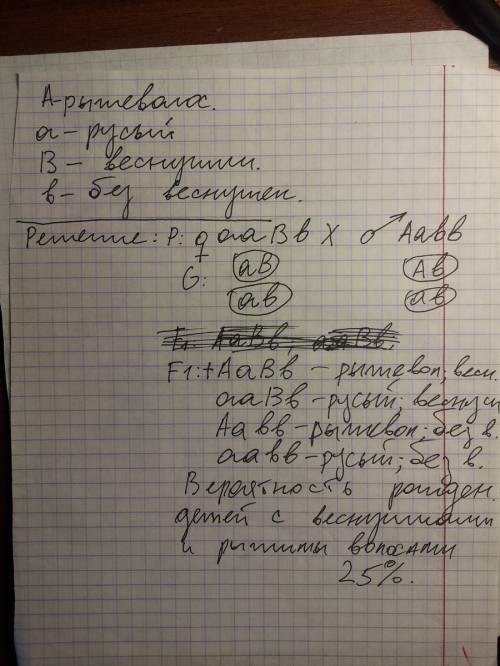 А-рыжеволос.
а-русый
В - веснушки.
в-без веснушек.
Решение: Р: ♀ ааВв X ♂ Аавв
G: аВ Ав
ав ав
F1: АаВв, ааВв.
F1:+АаВв - рыжевол; весн.
ааВв-русый; веснуш
Аавв-рыжевол; без в.
аавв-русый; без в.
Вероятность рожден.
детей с веснушками
и рыжими волосами
25%.